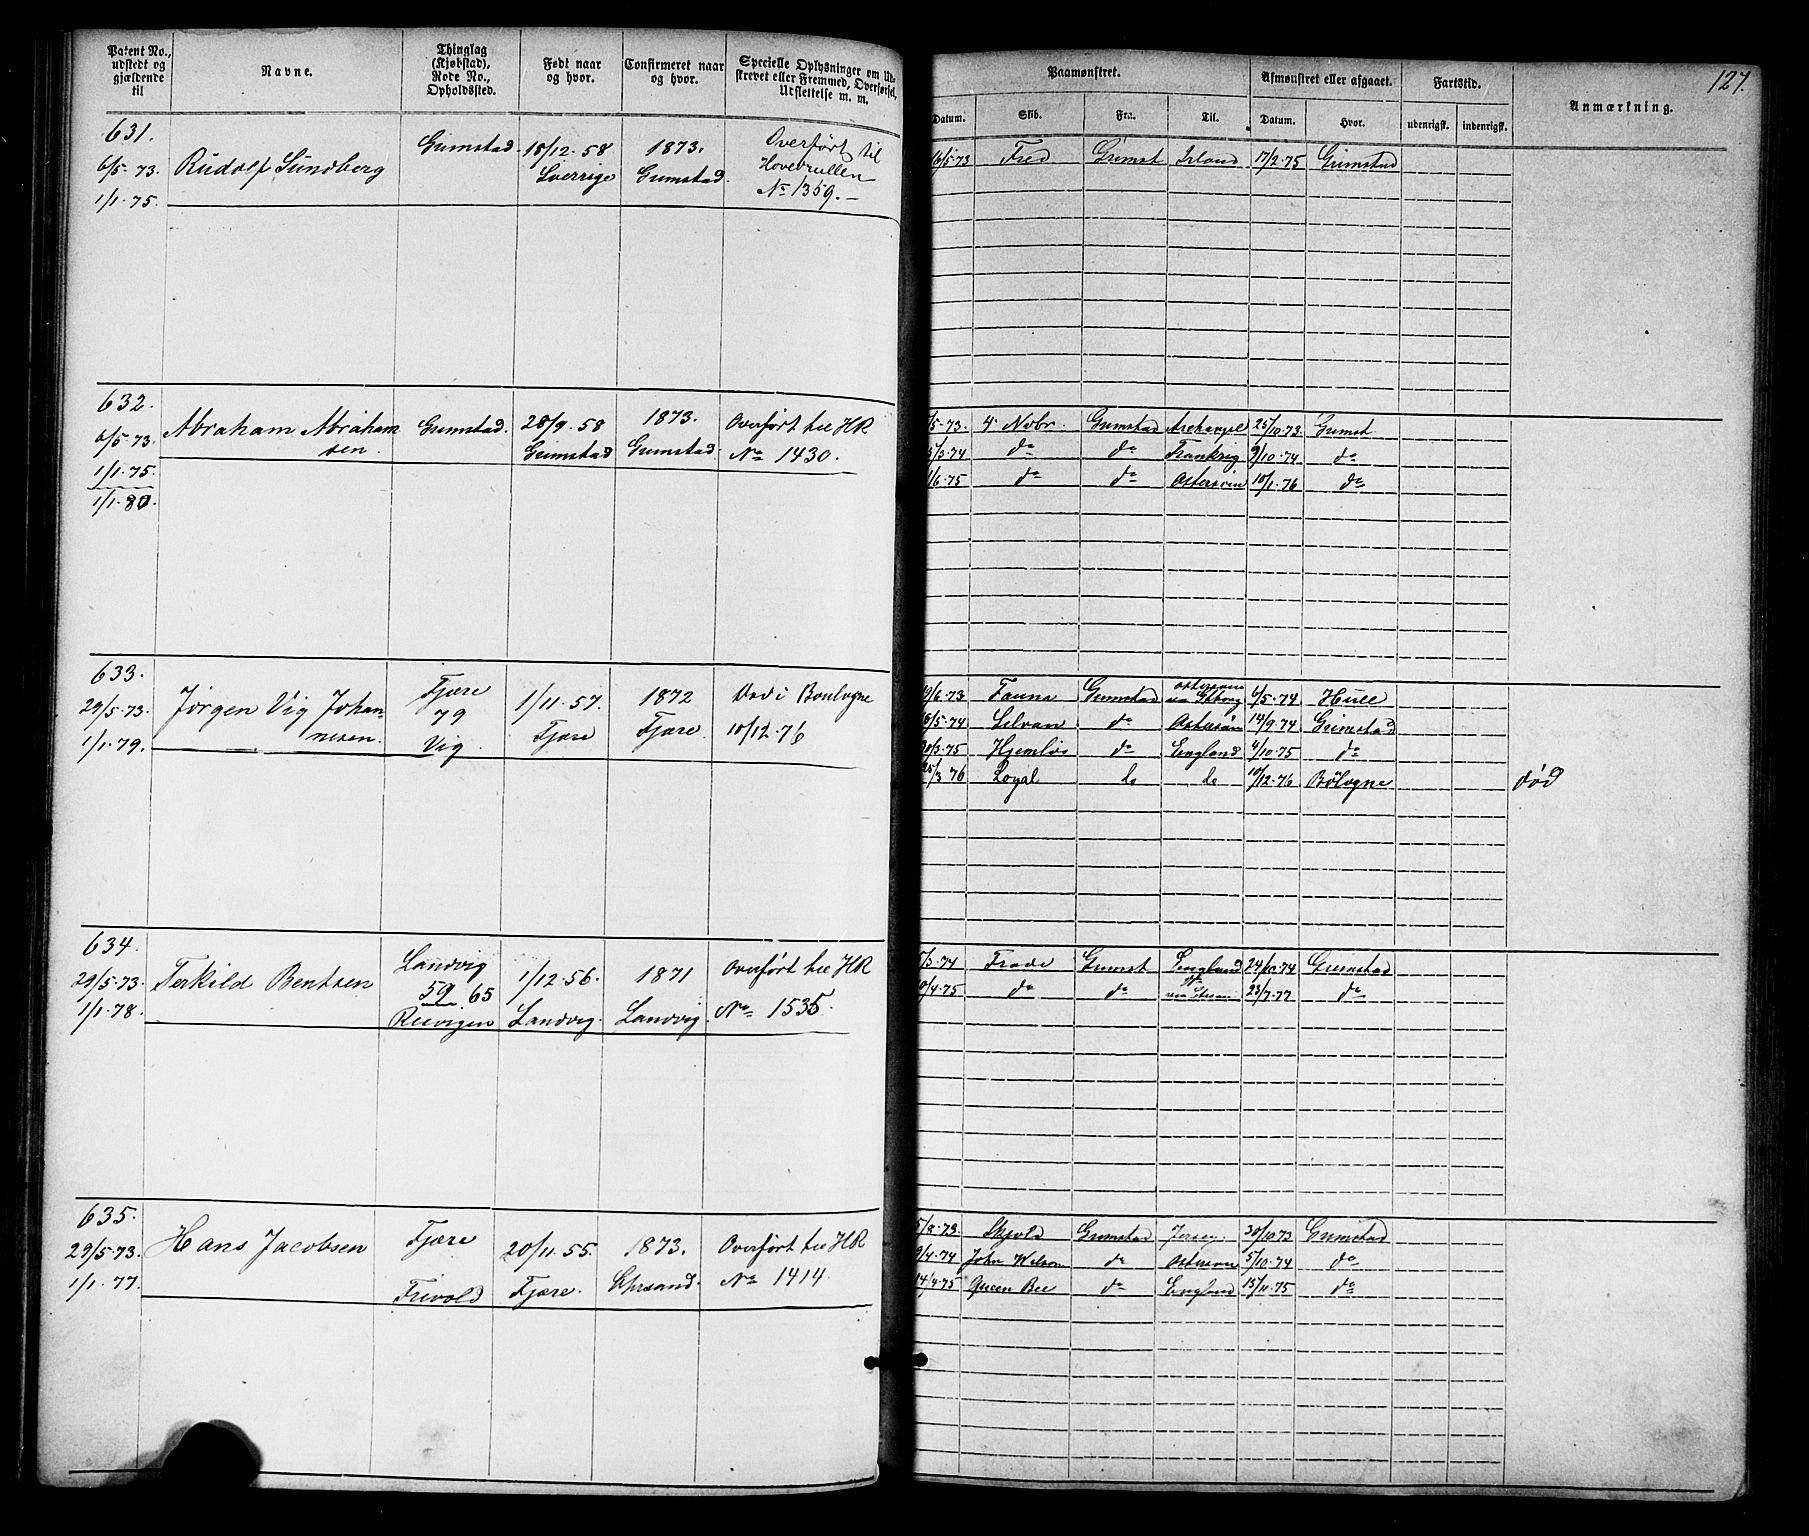 Patent No., udstedt og gjældende til
Navne.
Thinglag (Kjøbstad), Rode No., Opholdssted.
Født naar og hvor.
Confirmeret naar og hvor.
Specielle Oplysninger om Udskrevet eller Fremmed, Overførsel, Udslettelse m. m.
Paamønstret.
Afmønstret eller afgaaet.
Fartstid.
Anmærkning.
127.
Datum. Skib. Fra. Til. Datum. Hvor. udenrigsk. indenrigsk.
631.
6/5. 73.
1/1. 75.
Rudolf Sundberg
Grimstad
18/12. 58
Sverrige
1873.
Grimstad.
Overført til
Hovedrullen
No 1359.-
6/5 73 Fred Grimst Irland 17/2 75 Grimstad
632.
6/5. 73.
1/1. 75
1/1. 80.
Abraham Abraham
sen.
Grimstad.
28/9. 58
Grimstad
1873.
Grimstad.
Overført til HR
No 1430.
/5. 73. 4 Nvbr. Grimstad 25/10. 73. Grimst
/3. 74 do do Frankrig 9/10. 74 do
/6. 75 do do Østersøen 18/1. 76 do
633.
29/5. 73.
1/1. 79.
Jørgen Vig Johan-
nesen.
Fjære
79
Vig.
1/11. 57.
Fjære
1872
Fjære.
Død i Boulogne
10/12. 76
/6. 73 Fauna Grimstad 6/5. 74 Hull
/5. 74 Silvan do Østersøn 14/9. 74 Grimstad
/3. 75 Hjemløs do England 4/10. 75 do
25/3 76 Loyal do do 10/12. 76 Bôlogne død
634.
29/5. 73.
1/1. 78.
Terkild Bentsen
Landvig
59 65
Reevigen
1/12. 56.
Landvig.
1871
Landvig.
Overført til HR
No 1535.
/3. 74 Frode Grimst England 24/10. 74 Grimstad
/4. 75 do do 23/7. 77 do
635.
29/5. 73.
1/1. 77.
Hans Jacobsen
Fjære
Frivold
20/11. 55.
Fjære.
1873.
Chrsand.
Overført til HR
No 1414
5/8. 73 Skjold Grimstad Jersey 30/10 73 Grimstad
9/4. 74 John Wilson do Østersøen 5/10. 74 do
14/4. 75 Queen Bee do England 15/11. 75 do